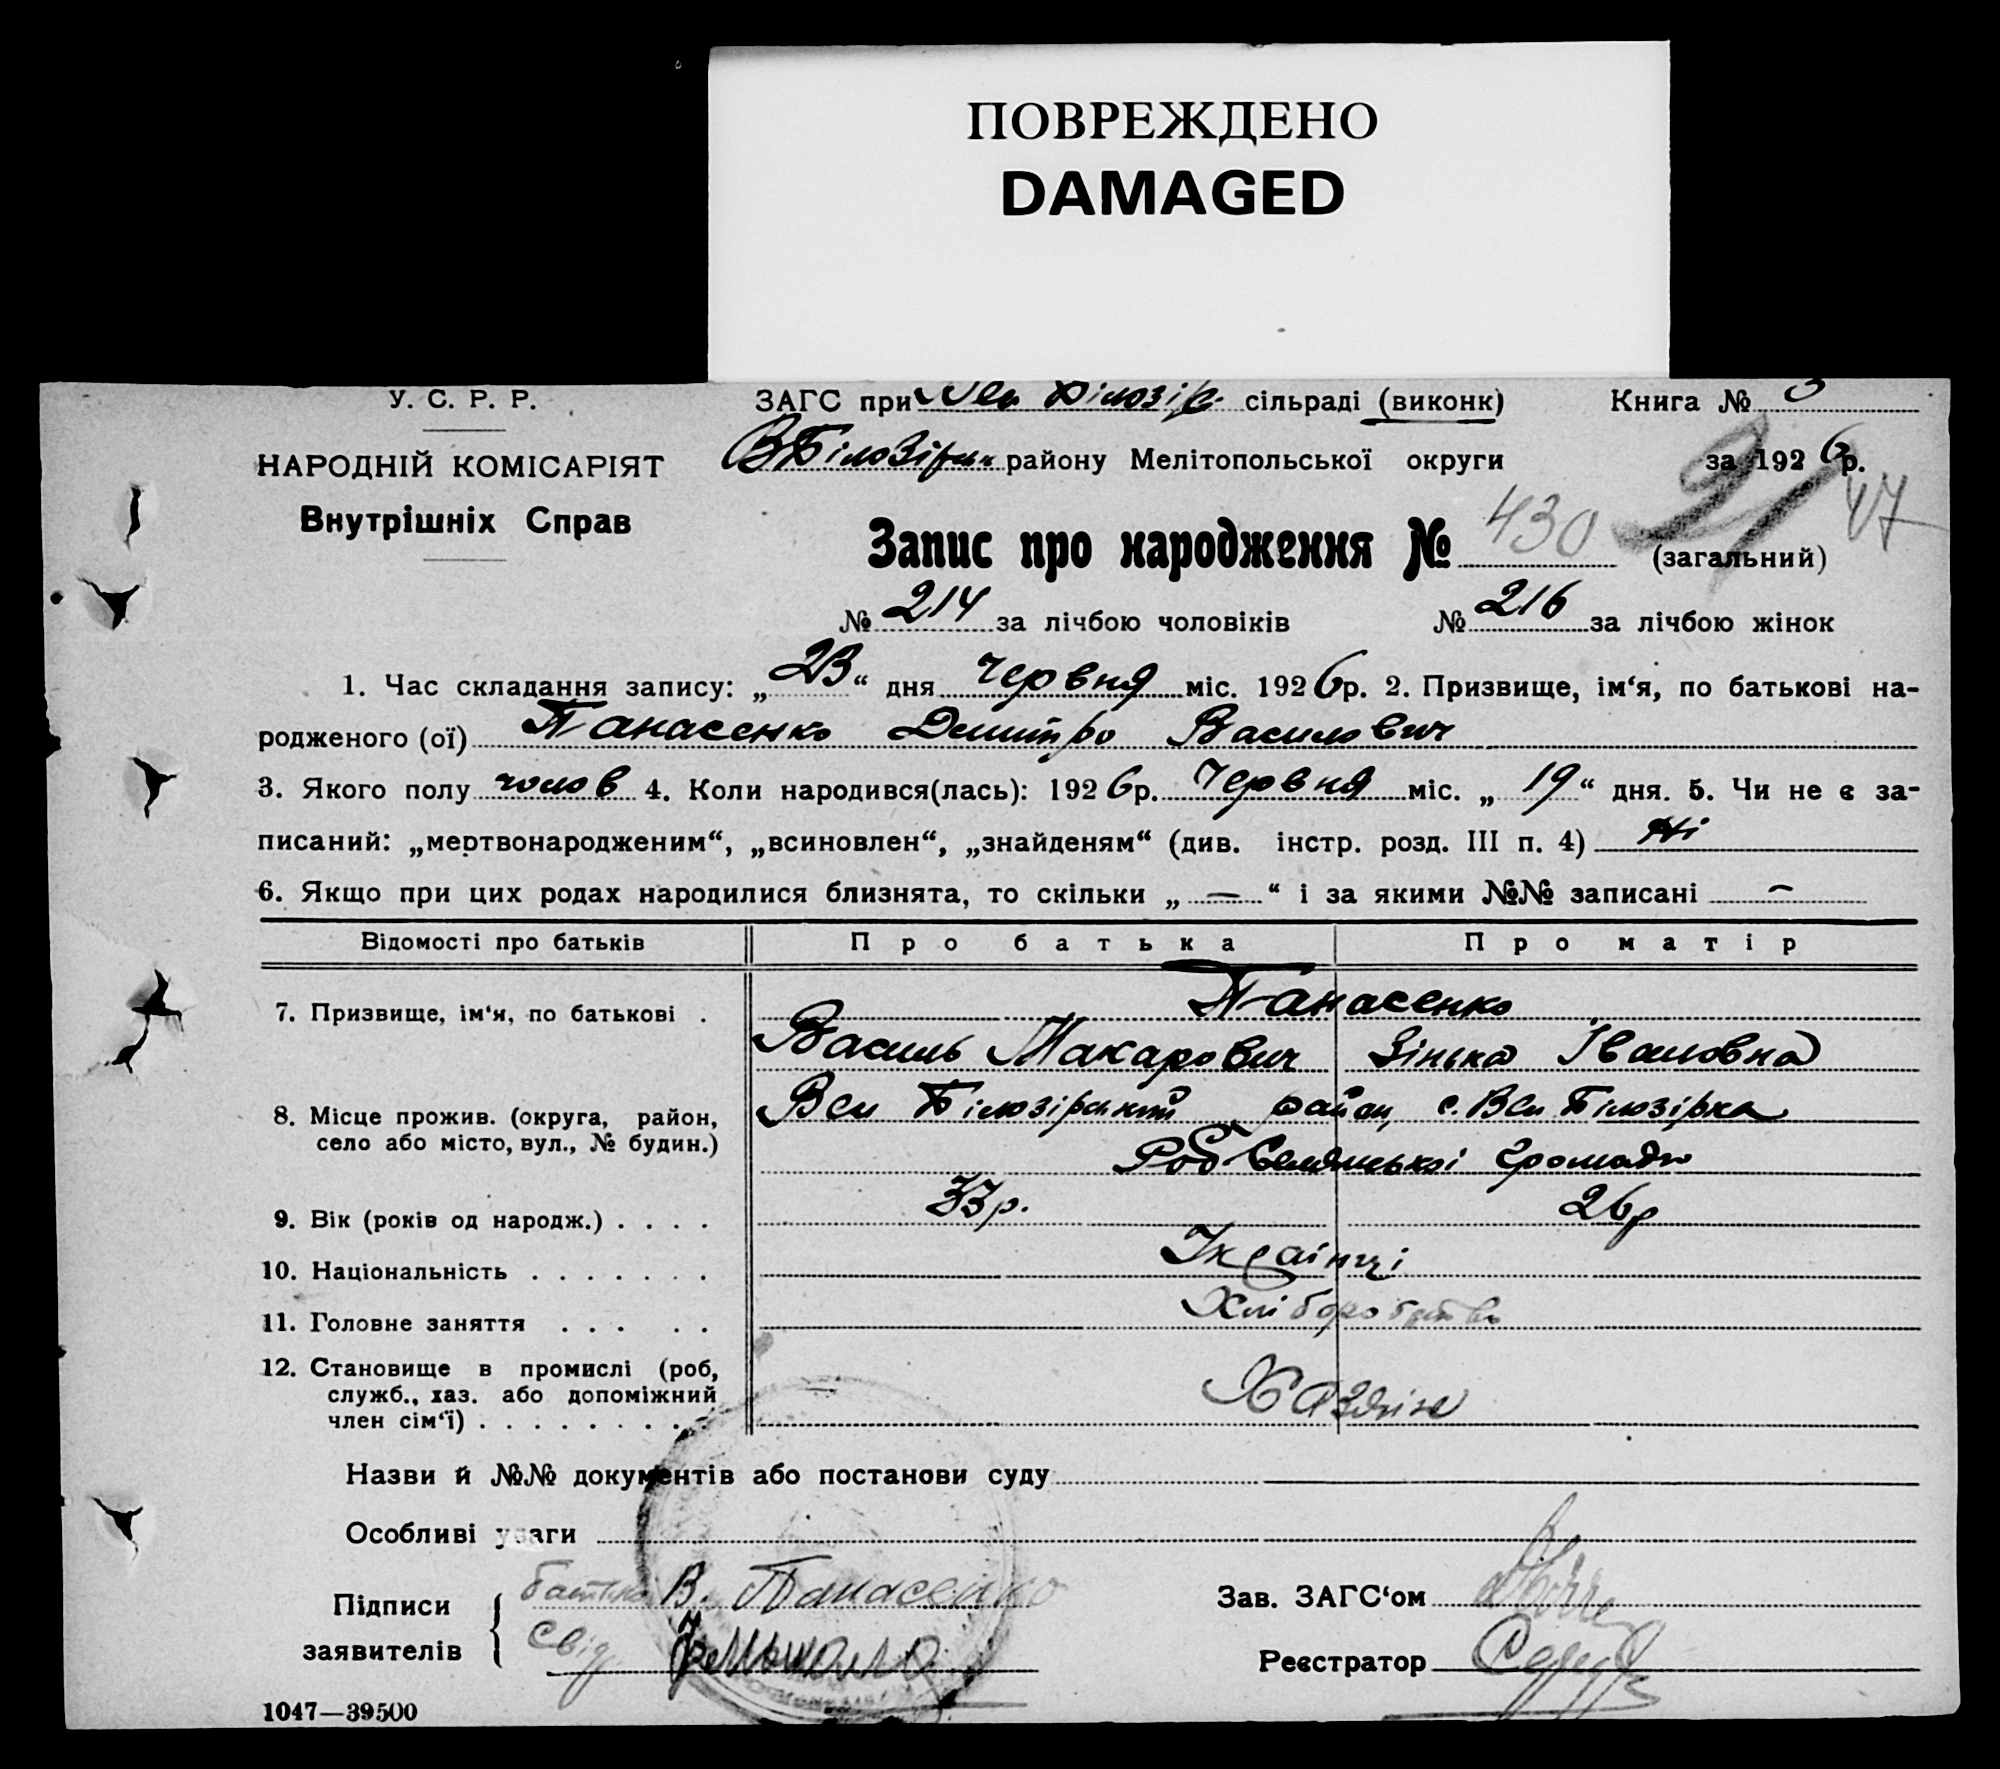 ПОВРЕЖДЕНО
DAMAGED
У. С. Р. Р.
ЗАГС при Вел Білозір. сільраді (виконк)
Книга № 3
НАРОДНІЙ КОМІСАРІЯТ
Внутрішніх Справ
ВБілозірськ району Мелітопольської округи
за 1926 р.
21
47
Запис про народження № 430 (загальний)
№ 214 за лічбою чоловіків № 216 за лічбою жінок
1. Час складання запису: „23“ дня Червня міс. 1926 р. 2. Призвище, ім‘я, по батькові на-
родженого (ої) Панасенко Дмитро Василович
3. Якого полу чолов 4. Коли народився(лась): 1926 р. Червня міс. „19“ дня. 5. Чи не є за-
писаний: „мертвонародженим“, „всиновлен“, „знайденям“ (див. інстр. розд. III п. 4) Ні
6. Якщо при цих родах народилися близнята, то скільки „—“ і за якими №№ записані —
Відомості про батьків Про батька Про матір
7. Призвище, ім‘я, по батькові . Панасенко
Василь Макарович Зінька Івановна
8. Місце прожив. (округа, район, село або місто, вул., № будин.) Вел Білозірський район, с. Вел Білозірка
Роб-Селянської Громади
9. Вік (років од народж.) . . . . 33 р. 26 р
10. Національність . . . . . . . Українці
11. Головне заняття . . . . . Хліборобство
12. Становище в промислі (роб,
служб., хаз. або допоміжний
член сім‘ї) . . . . . . . . Хазяїне
Назви й №№ документів або постанови суду
Особливі уваги
Підписи
заявителів
батько В. Панасенко
Свід.
Зав. ЗАГС‘ом
Реєстратор
1047—39500